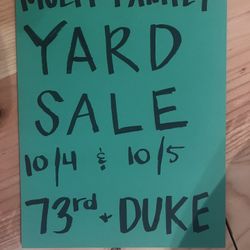 MULTI FAMILY
YARD
SALE
10/4 & 10/5
73rd + DUKE